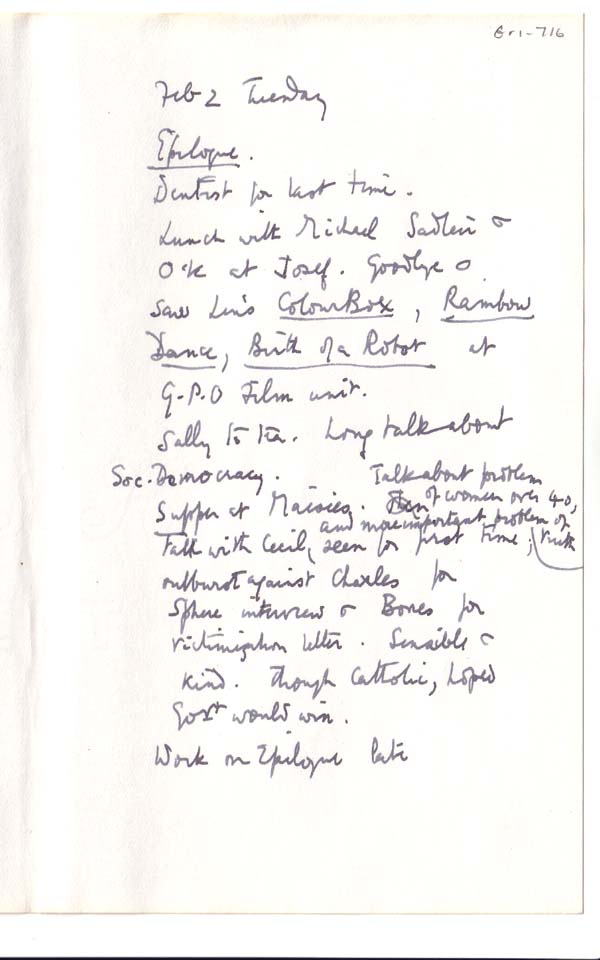 Gr1-716
Feb 2 Tuesday
Epilogue.
Dentist for last time.
Lunch with Michael Sadleir &
at Josef. Goodbye
Saw Len's ColourBox, Rainbow
Dance, Birth of a Robot at
G-P.O Film unit.
Sally to tea. Long talk about
Soc. Democracy. Talk about problem
of women over 40,
Supper at Maisies.
and more important problem of
Talk with Cecil, seen for first time; truth
outburst against Charles for
Sphere interview & Bones for
victimization letter. Sensible &
kind. Though Catholic, hoped
Govt would win.
Work on Epilogue late